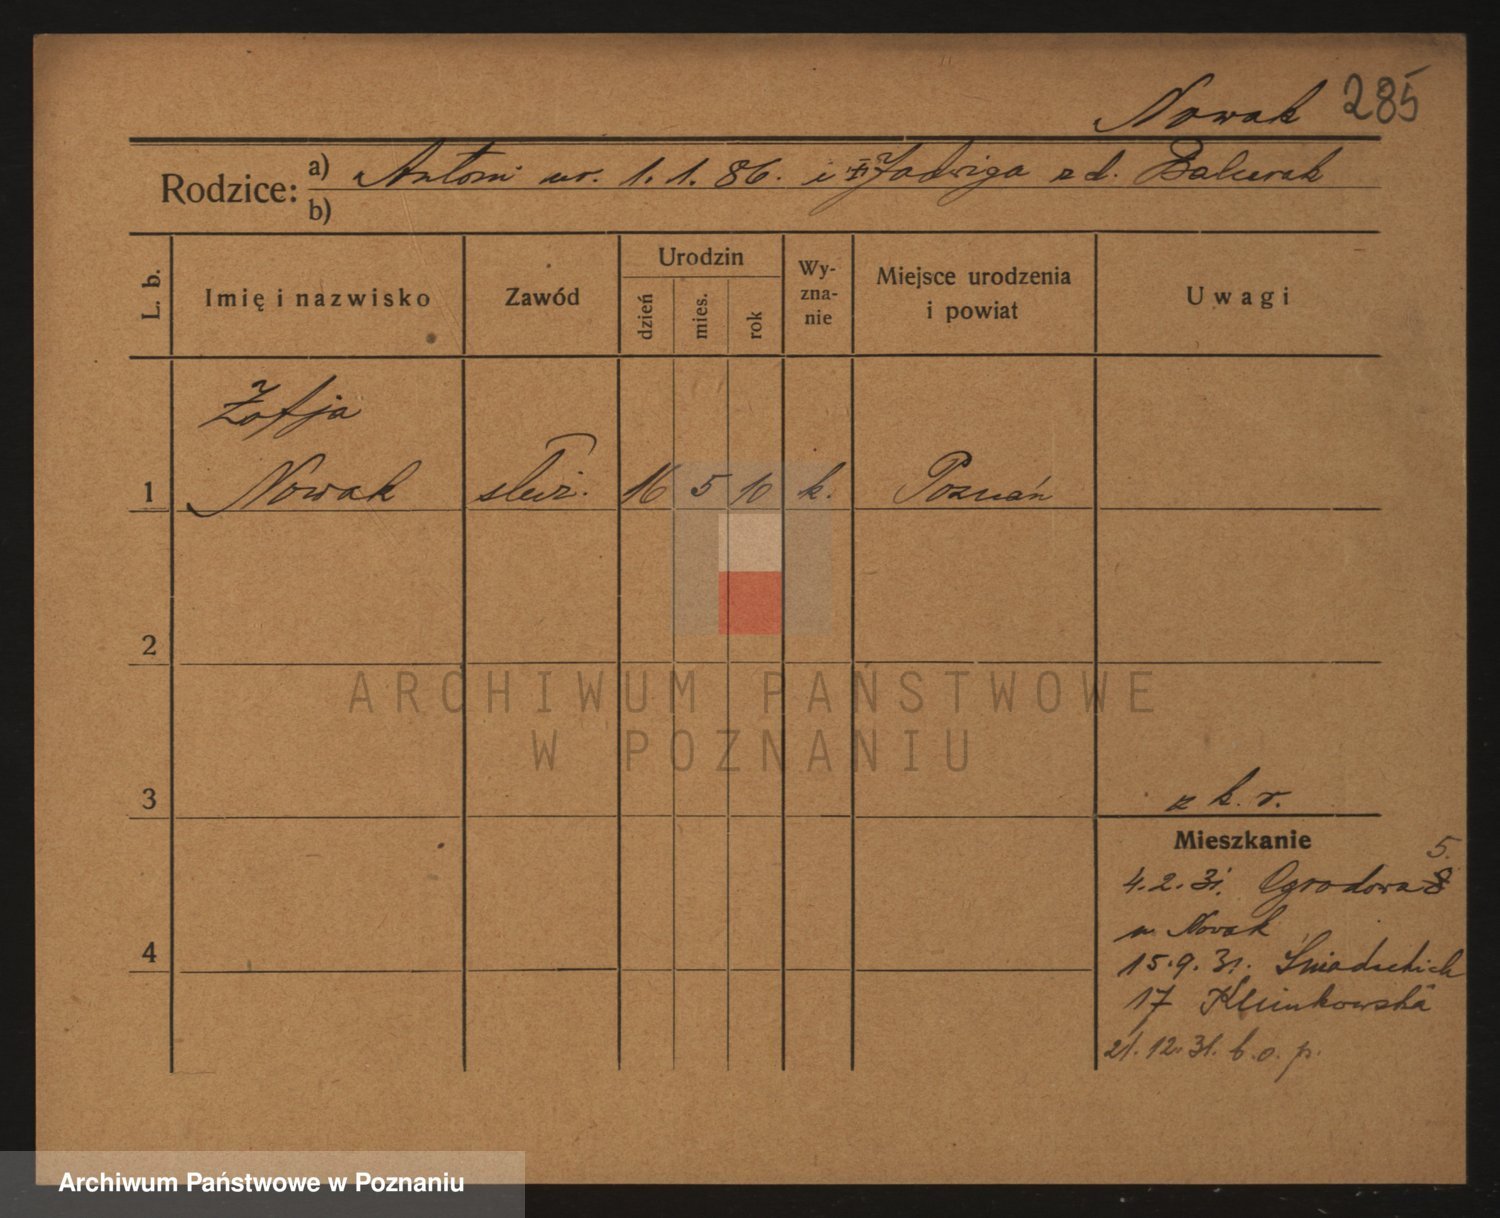 Nowak 285
Rodzice: a) Antoni ur. 1.1.86. i Jadwiga z d.
b)
L. b. Imię i nazwisko Zawód Urodzin dzień mies. rok Wy-zna-nie Miejsce urodzenia i powiat Uwagi
Zofja
1 Nowak służ. 16 5 10 k. Poznań
2
ARCHIWUM PAŃSTWOWE
W POZNANIU
3 z k. r.
Mieszkanie
5.
4.2.31. Ogrodowa 8
u. Nowak
4
15.9.31. Śniadeckich
17 Klimkowska
21.12.31. b. o. p.
Archiwum Państwowe w Poznaniu